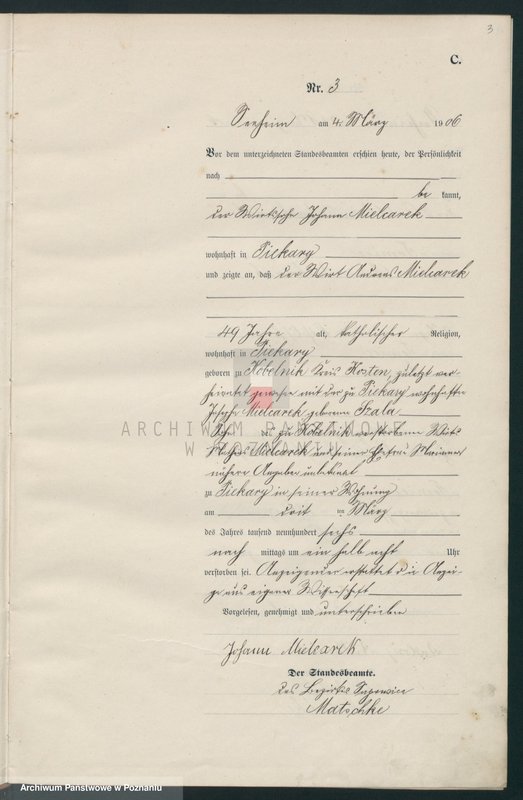 3
C.
Nr. 3
Seeheim am 4. März 1906
Vor dem unterzeichneten Standesbeamten erschien heute, der Persönlichkeit
nach
be kannt,
der Wirtssohn Johann Mielcarek
wohnhaft in Piekary
und zeigte an, daß der Wirt Andreas Mielcarek
49 Jahre alt, katholischer Religion,
wohnhaft in Piekary
geboren zu Kobelnik Kreis Kosten, zuletzt ver-
heiratet gewesen mit der zu Piekary wohnhaften
Josepha Mielcarek geborene Szala
Sohn des zu Kobelnik verstorbenen Wirts
Mielcarek und seiner Ehefrau
nähere Angaben unbekannt
zu Piekary in seiner Wohnung
am drit ten März
des Jahres tausend neunhundert sechs
nach mittags um ein halb acht Uhr
verstorben sei. Anzeigender erstattet die Anzei-
ge aus eigener Wissenschaft
Vorgelesen, genehmigt und unterschrieben
Johann Mielcarek
Der Standesbeamte.
des Bezirks Sapowice
Matschke
ARCHIWUM PAŃSTWOWE
W POZNANIU
Archiwum Państwowe w Poznaniu